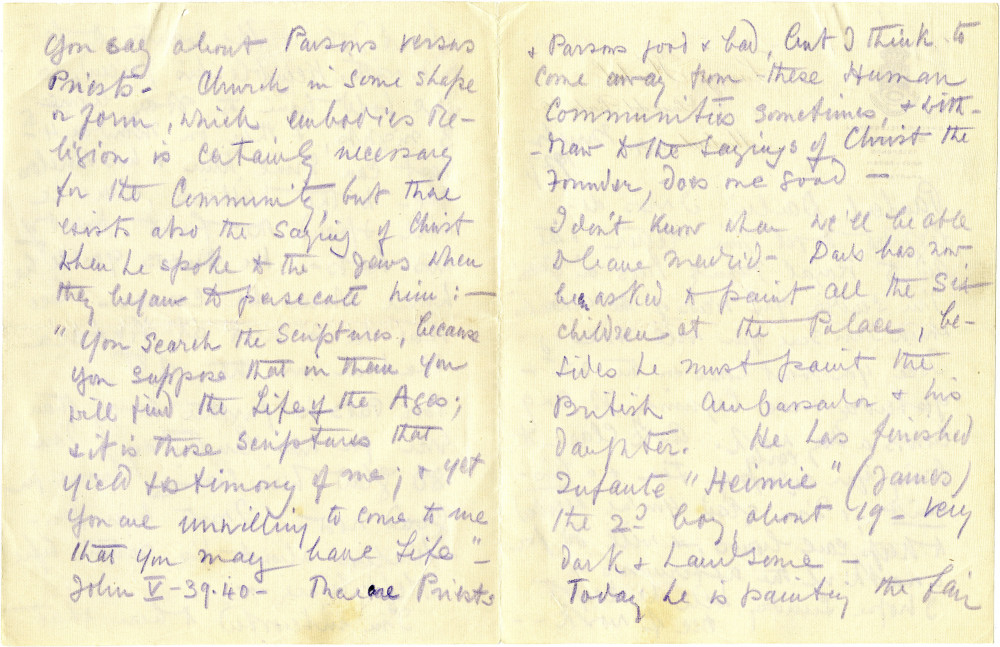 You say about Parsons versus
Priests - Church in some shape
or form, which embodies Re-
ligion is certainly necessary
for the Community, but there
exists also the saying of Christ
when he spoke to the Jews when
they began to persecute him: —
"You search the Scriptures, because
you suppose that in them you
will find the Life of the Ages;
& it is those Scriptures that
yield testimony of me; & yet
you are unwilling to come to me
that you may have Life" -
John V - 39.40 - There are Priests
& Parsons good & bad, but I think to
come away from these Human
Communities sometimes, & with-
-draw to the sayings of Christ the
Founder, does one good —
I don't know when we'll be able
to leave Madrid - has now
been asked to paint all the Six
children at the Palace, be-
sides he must paint the
British Ambassador & his
daughter. He has finished
Infante "Heimie" (James)
the 2d boy about 19 - very
dark & handsome -
Today he is painting the fair